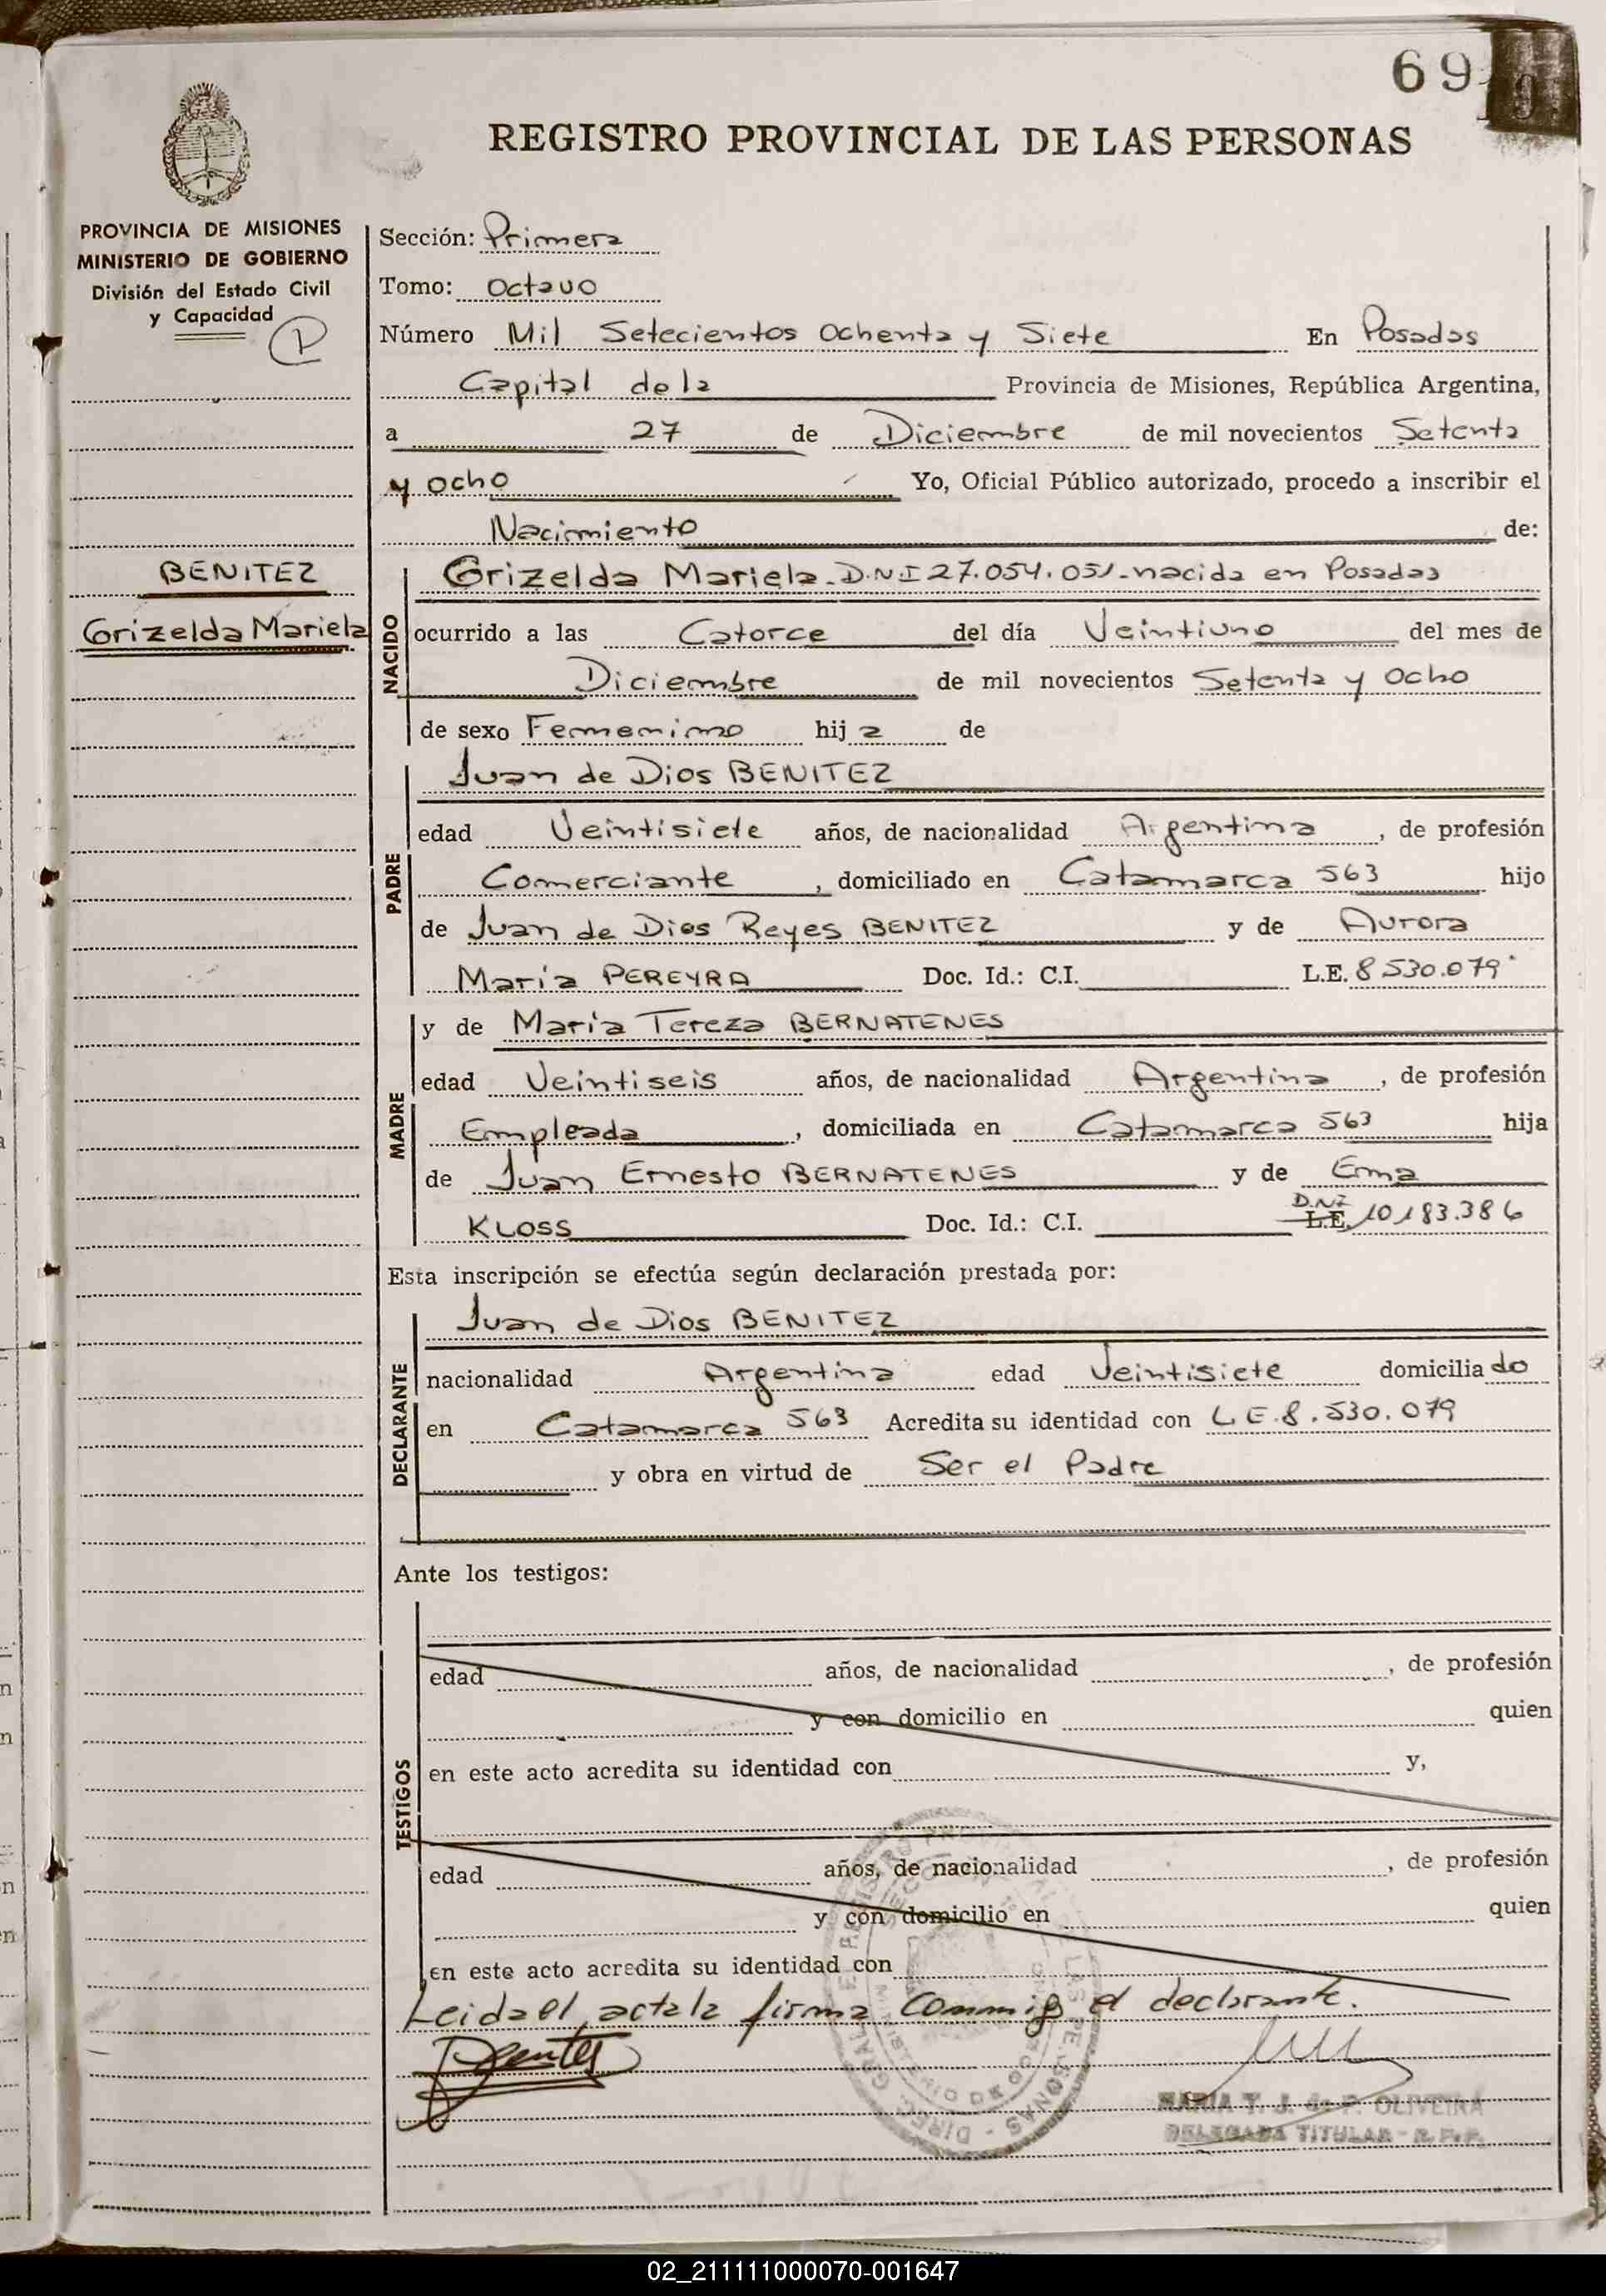 69
REGISTRO PROVINCIAL DE LAS PERSONAS
PROVINCIA DE MISIONES
MINISTERIO DE GOBIERNO
División del Estado Civil
y Capacidad
BENITEZ
Grizelda Mariela
Sección: Primera
Tomo: Octavo
Número Mil Setecientos Ochenta y Siete En Posadas
Capital de la Provincia de Misiones, República Argentina,
a 27 de Diciembre de mil novecientos Setenta
y ocho Yo, Oficial Público autorizado, procedo a inscribir el
Nacimiento de:
NACIDO
Grizelda Mariela - D.N.I 27.054.051 - nacida en Posadas
ocurrido a las Catorce del día Veintiuno del mes de
Diciembre de mil novecientos Setenta y Ocho
de sexo Femenino hij a de
PADRE
Juan de Dios BENITEZ
edad Veintisiete años, de nacionalidad Argentina, de profesión
Comerciante, domiciliado en Catamarca 563 hijo
de Juan de Dios Reyes BENITEZ y de Aurora
María PEREYRA Doc. Id.: C.I. L.E. 8530.079
MADRE
y de María Tereza BERNATENES
edad Veintiseis años, de nacionalidad Argentina, de profesión
Empleada, domiciliada en Catamarca 563 hija
de Juan Ernesto BERNATENES y de Erma
KLOSS Doc. Id.: C.I. D.N.I L.E. 10183.386
Esta inscripción se efectúa según declaración prestada por:
DECLARANTE
Juan de Dios BENITEZ
nacionalidad Argentina edad Veintisiete domicilia do
en Catamarca 563 Acredita su identidad con L.E. 8.530.079
y obra en virtud de Ser el Padre
Ante los testigos:
TESTIGOS
edad años, de nacionalidad , de profesión
y con domicilio en quien
en este acto acredita su identidad con y,
edad años, de nacionalidad , de profesión
y con domicilio en quien
en este acto acredita su identidad con
Leida el acta la firma conmigo el declarante.
MARIA T. J. de P. OLIVEIRA
DELEGADA TITULAR - R.P.P.
02_211111000070-001647